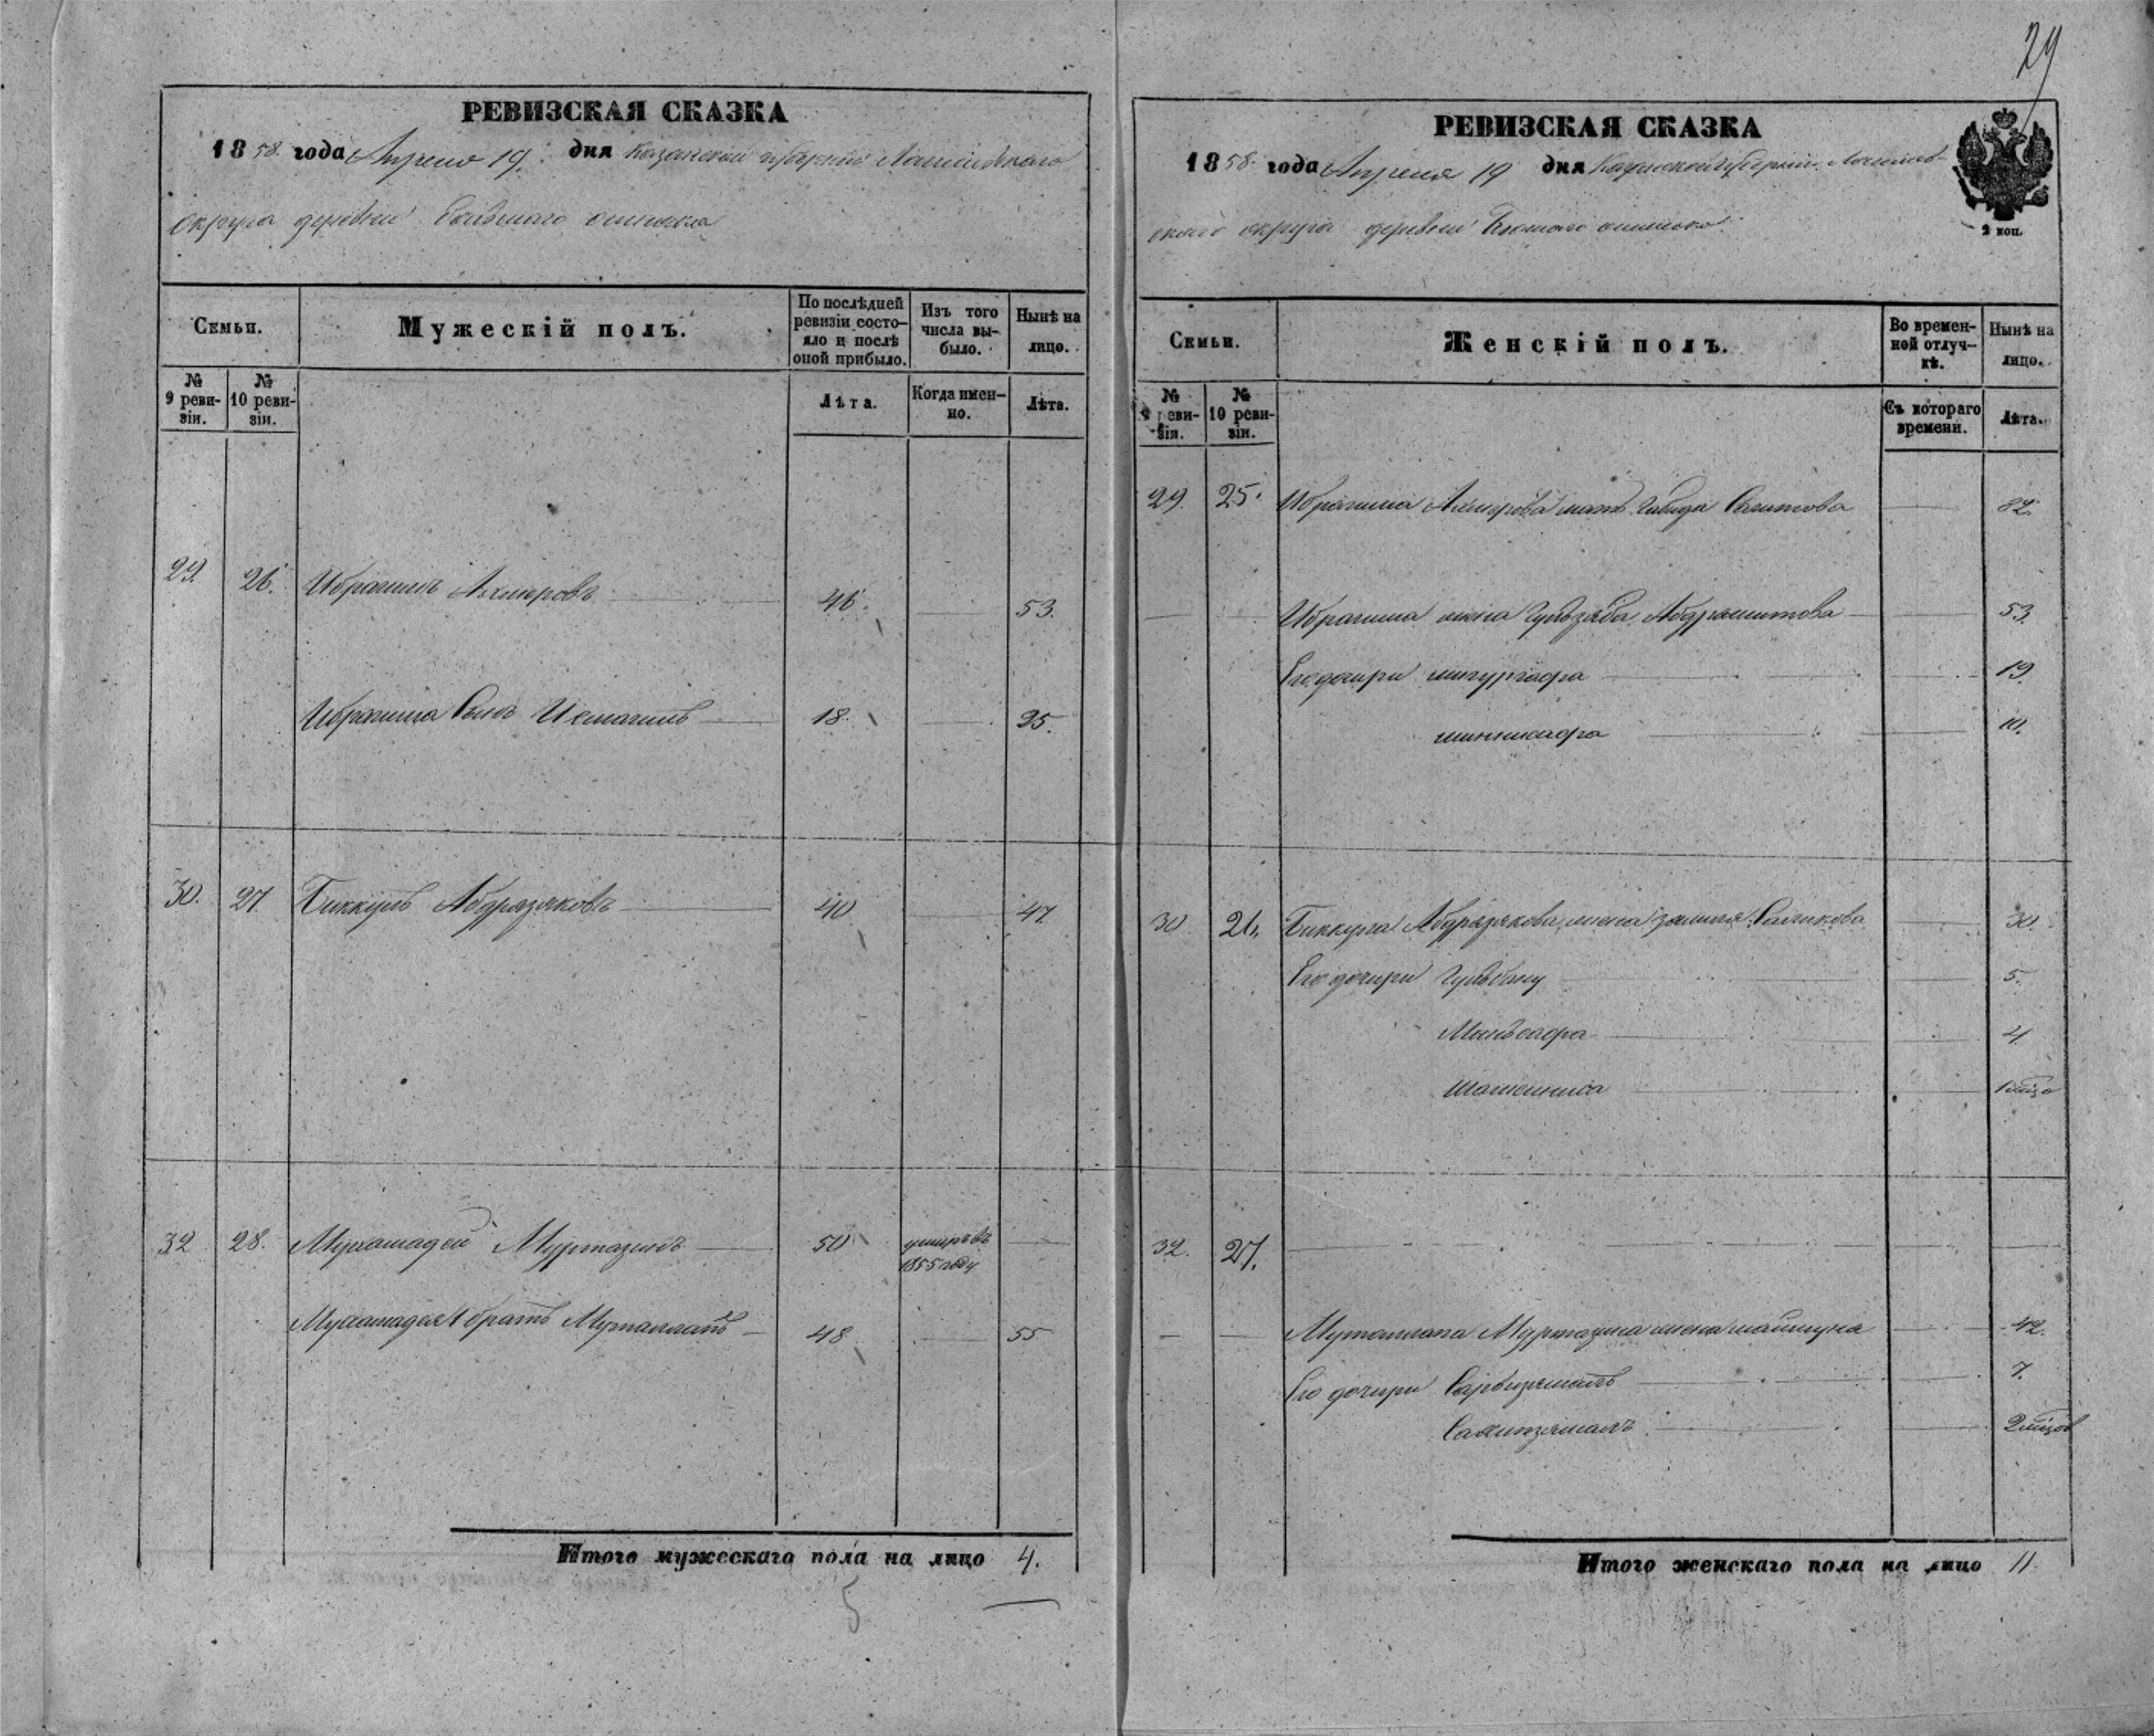 29
РЕВИЗСКАЯ СКАЗКА
1858. года Апреля 19. дня Казанской губернии Лаишевскаго
округа деревни
Семьи.
Мужескій полъ.
По послѣдней ревизіи состо-
яло и послѣ оной прибыло.
Изъ того числа вы-
было.
Нынѣ на лицо.
№ 9 реви-
зіи.
№ 10 реви-
зіи.
Лѣта.
Когда имен-
но.
Лѣта.
29. 26. Ибрагимъ Ахмеровъ 46. 53.
Ибрагима сынъ Исмагилъ 18. 25.
30. 27. Биккулъ Абдрязяковъ 40 47.
32 28. Мухамадей Муртазинъ 50 умеръ въ
1855 году
Мухамадея братъ Муталлапъ 48 55
Итого мужескаго пола на лицо 4.
5
РЕВИЗСКАЯ СКАЗКА
1858. года Апреля 19 дня Казанской губернии Лаишев-
скаго округа деревни
2 коп.
Семьи.
Женскій полъ.
Во времен-
ной отлуч-
кѣ.
Нынѣ на лицо.
№ 9 реви-
зіи.
№ 10 реви-
зіи.
Съ котораго времени.
Лѣта.
29. 25. Ибрагима Ахмерова мать 82.
Ибрагима жена Абдрашитова 53.
Его дочери 19.
10.
30 26. Биккула Абдрязякова жена 30.
Его дочери Гульбану 5.
Миньсафа 4
32. 27.
Муталлапа Муртазина жена Маймуна 42.
Его дочери 7.
Итого женскаго пола на лицо 11.